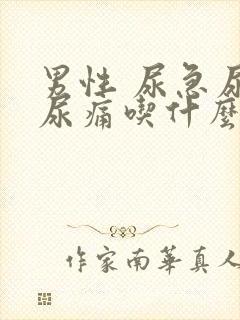 男性 尿急尿
尿痛喫什麼
作家南華真人